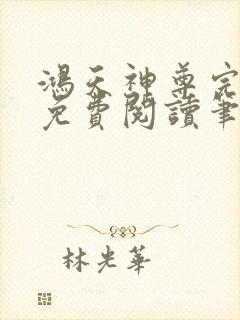 鴻天神尊完
免費閱讀筆
林光華